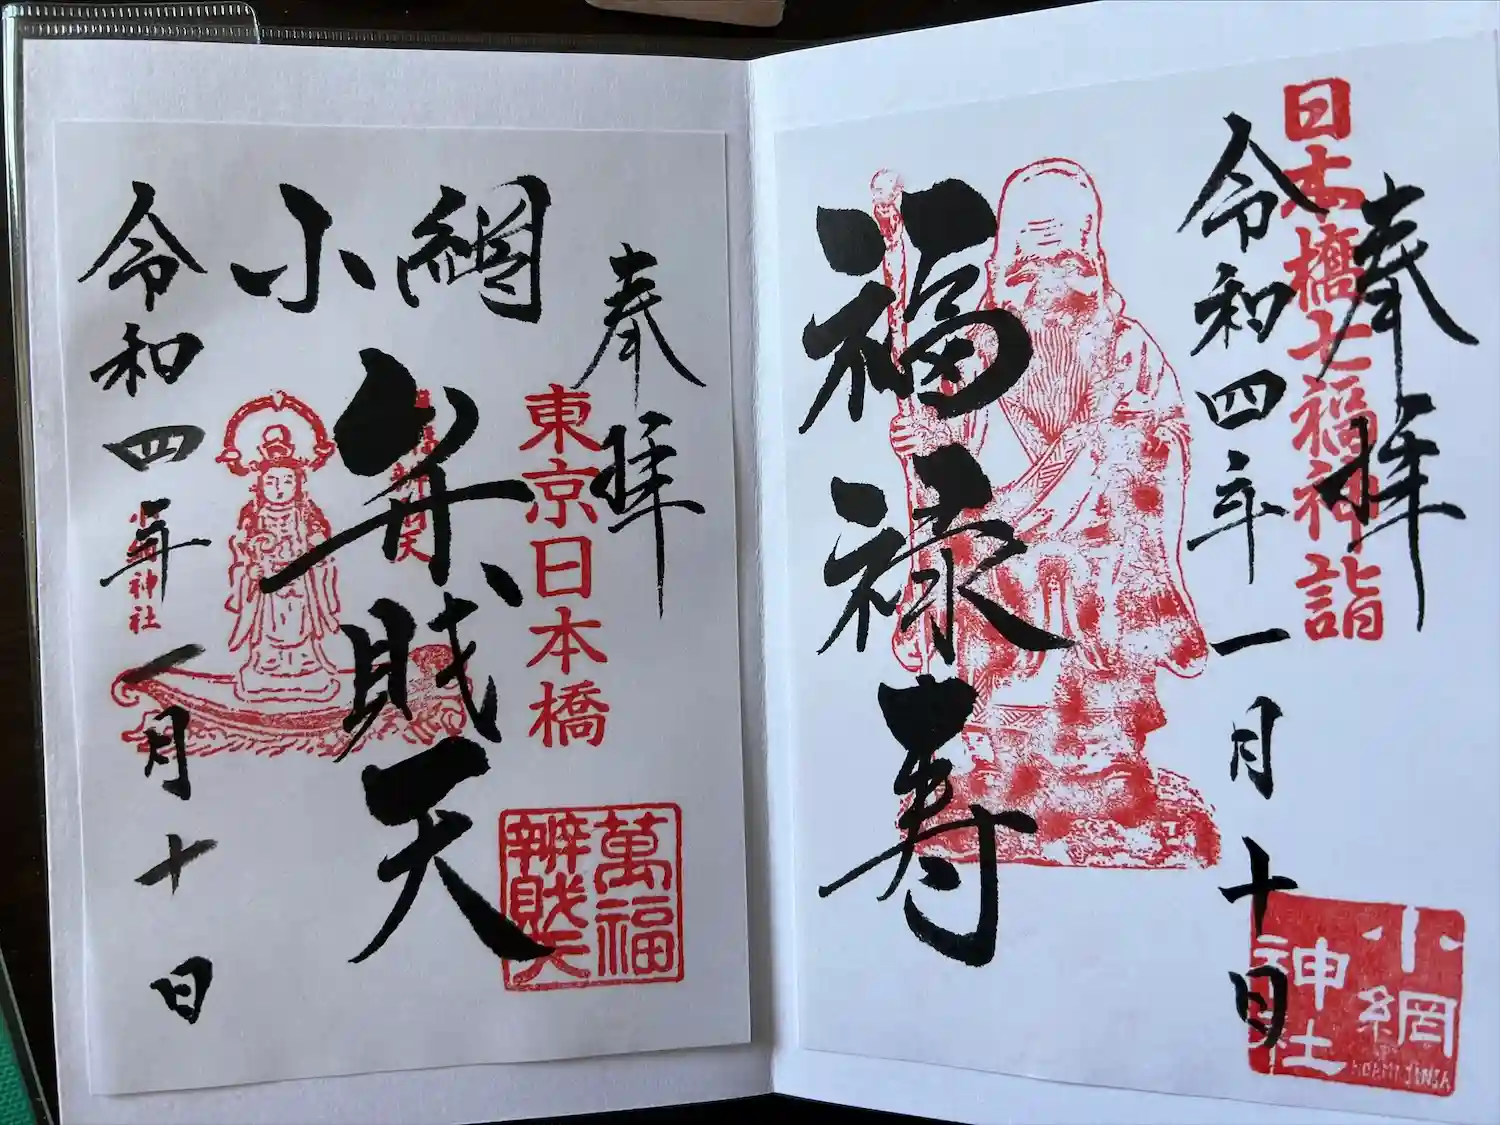 奉拝
日本橋七福神詣
福禄寿
令和四年一月十日
小網
神社
KOAMI JINJA
奉拝
東京日本橋
小網
弁財天
萬福
辨財天
令和四年一月十日
神社